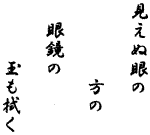 見えぬ眼の
方の
眼鏡の
玉も拭く